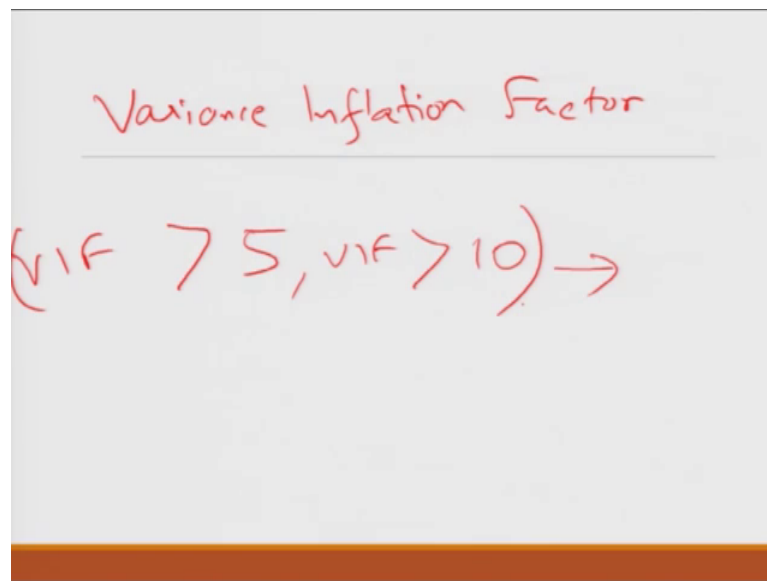 Variance Inflation Factor
(VIF > 5, VIF > 10) →